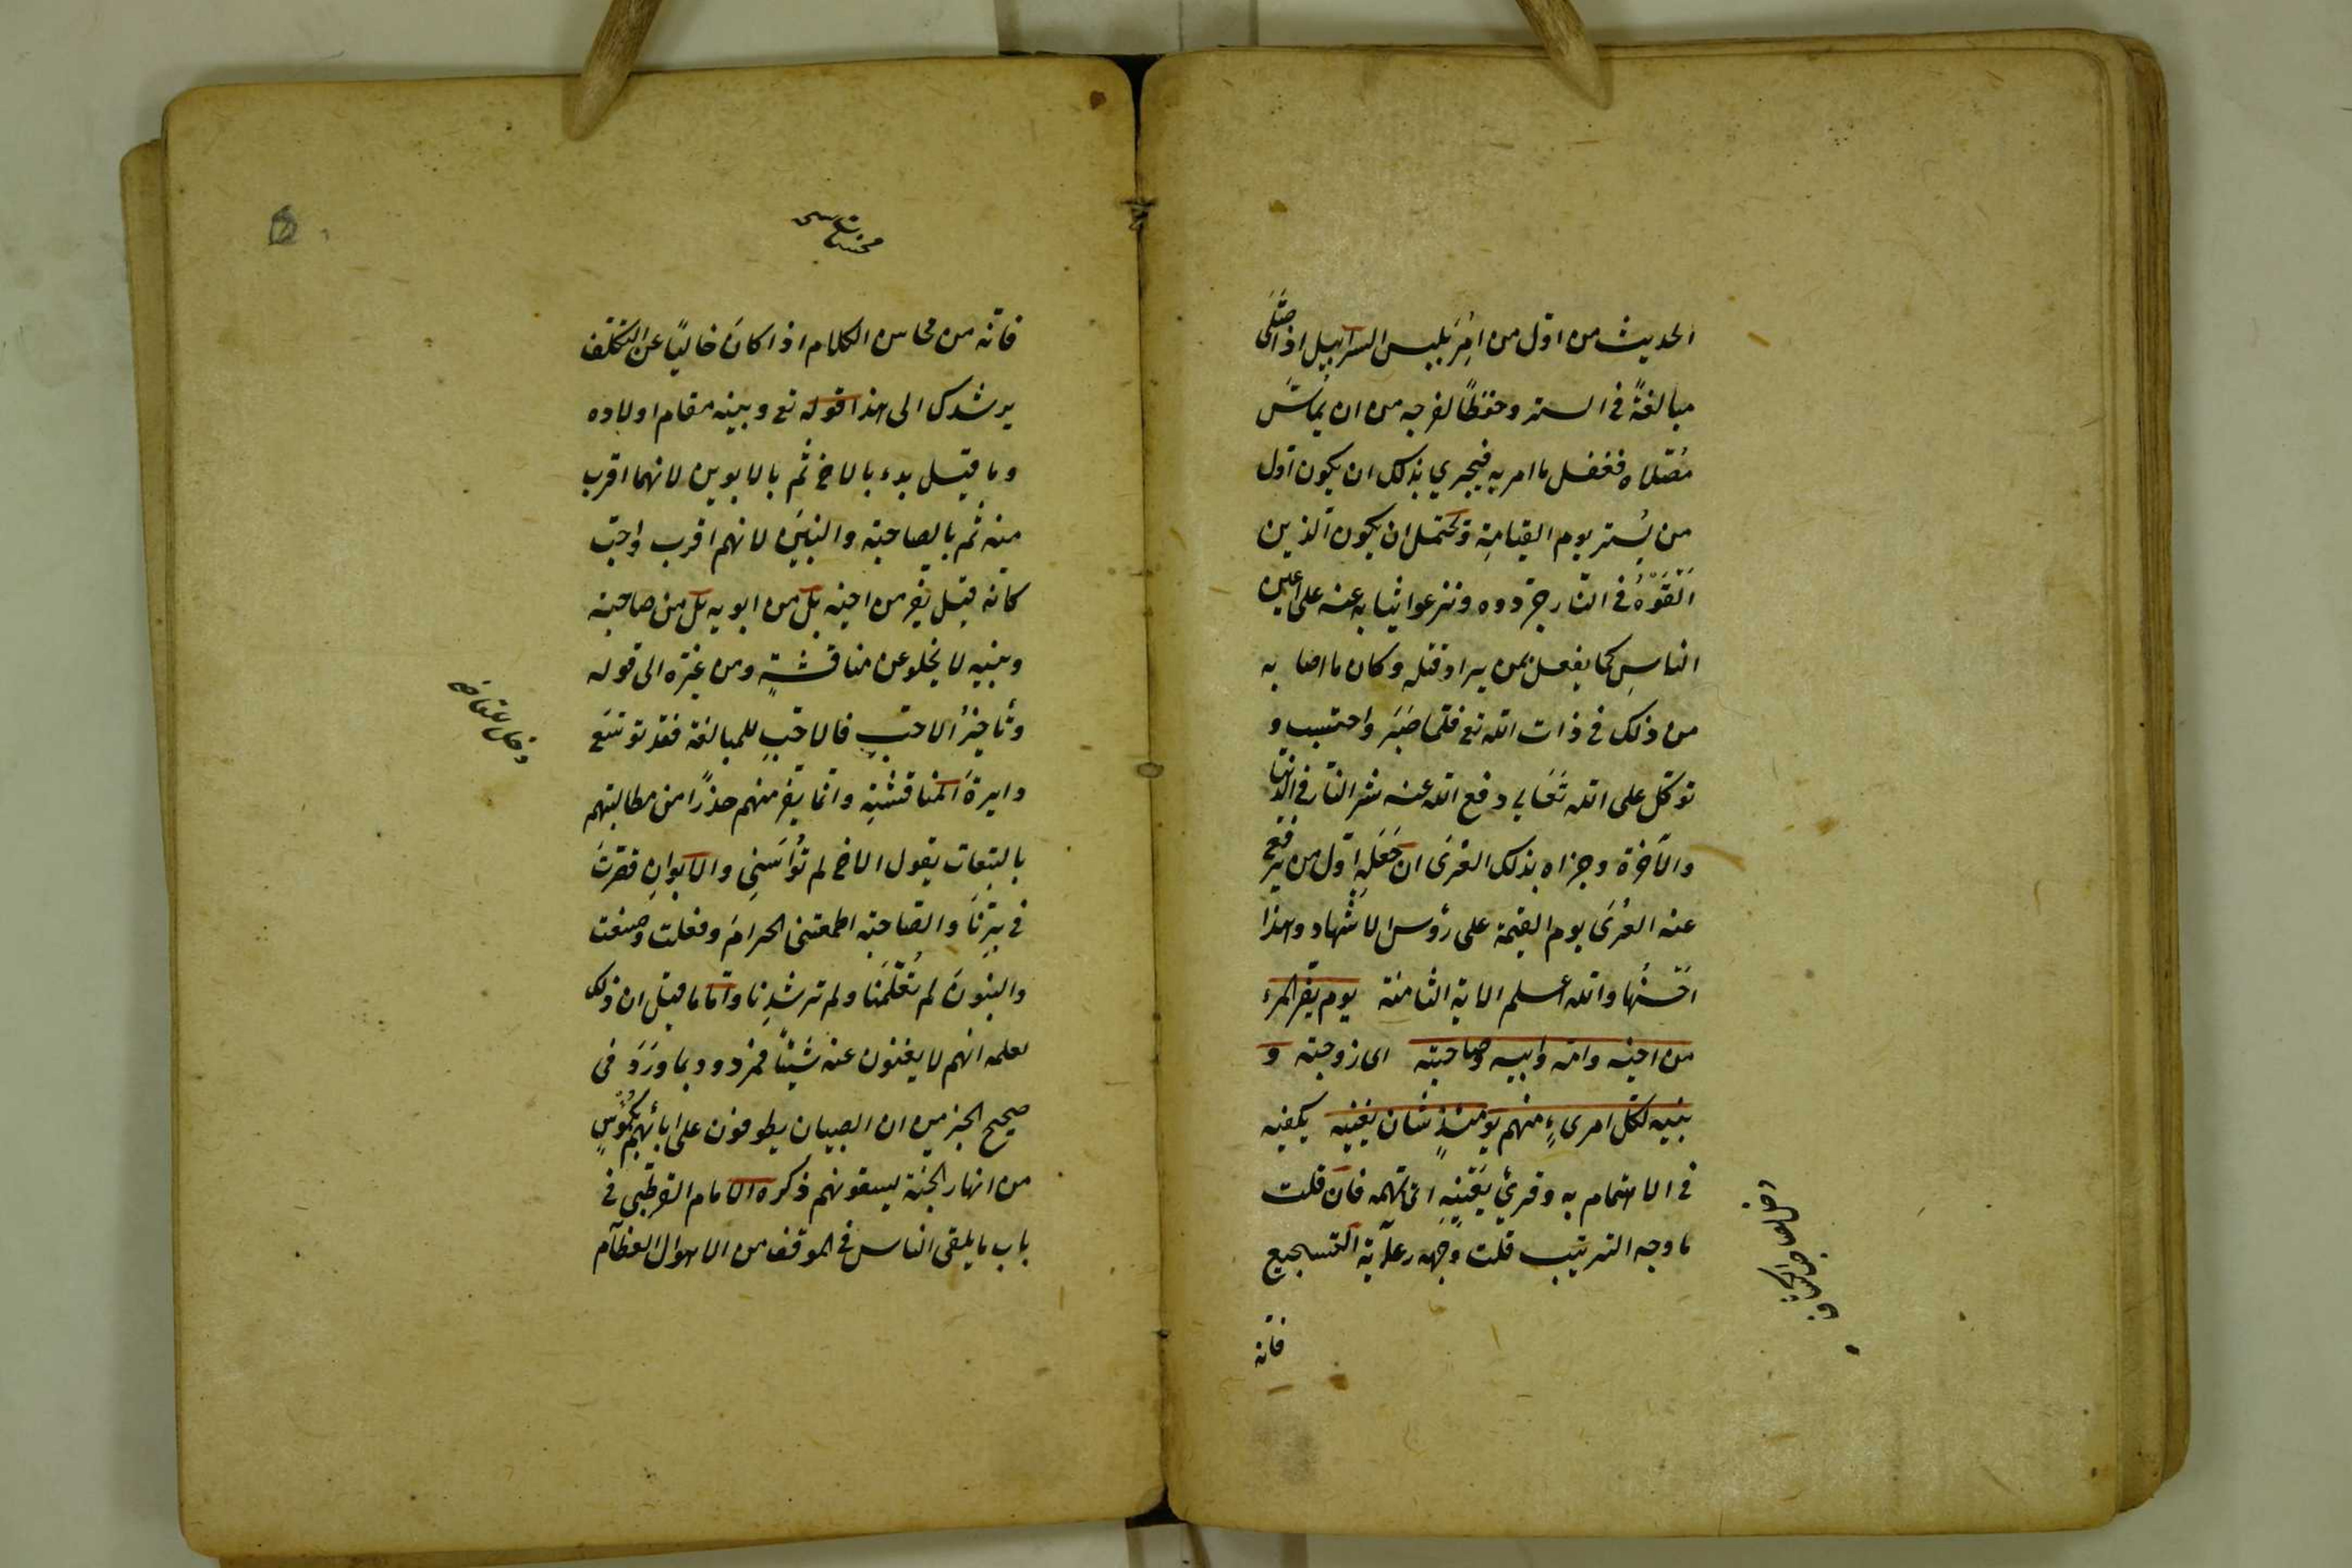 الحديث من اوّل من اُمِرَ بلبس السراويل اذا صَلّى
مبالغةً في الستر وحفظًا لفرجه من ان يُماسّ
مُصّلاه ففعل ما امر به فيجري بذلك ان يكون اوّل
من يُستر يوم القيامة ويحتمل ان يكون الذين
اَلقَوْهُ في النّار جرّدوه ونزعوا ثيابه عنه على اعين
الناسِ كما يفعل بمن يراد قتله وكان ما اصابه
من ذلك في ذات الله تع فلمّا صَبَرَ واحتسب و
توكّل على الله تَعَالى دفع الله عنه شر النّار في الدّنيا
والآخرة وجزاه بذلك العُرْىَ ان جَعَله اوّل من يُرفع
عنه العُرْىَ يوم القيمة على رؤس الاشهاد وهذا
احسنُها والله اعلم الاية الثامنة يوم يفرّ المرء
من اخيه وامّه وابيه وصاحبته اى زوجته و
بنيه لكلّ امرىءٍ منهم يومئذٍ شان يغنيه يكفيه
في الاهتمام به وقرئ يَعنيهِ اى يهمّه فان قلت
ما وجه الترتيب قلت وَجهه رعاية التسجيع
فانه
فانّه من محاسن الكلام اذا كانَ خاليًا عن التكلّف
يرشدك الى هذا قوله تع وبنيه مقام اولاده
وما قيل بدء بالاخ ثُم بالابوين لانهما اقرب
منه ثُم بالصاحبة والبنين لانهم اقرب واحبّ
كانّه قيل يفر من اخيه بل من ابويه بل من صاحبته
وبنيه لا يخلو عن مناقشةٍ ومن غيّره الى قوله
وتأخيرُ الاحبّ فالاحبّ للمبالغة فقد توسّع
دايرةَ المناقشةِ وانّما يفرّ منهم حذرًا من مطالبتهم
بالتبعات يقول الاخ لم تُوَاسَنِى والابوانِ قصّرتَ
في بِرّنَا والصّاحبة اطعمتنى الحرامَ وفعلت وصنعت
والبنونَ لم تُعَلّمنا ولم ترشدنا وامّا ما قيل ان ذلك
لعلمه انهم لا يغنون عنه شيئًا فمردود بما وَرَدَ في
صحيح الخبر من ان الصبيان يطوفون على ابائهم بكُؤُسٍ
من انهار الجنّة يسقونهم ذكره الامام القرطبى في
باب ما يلقى الناس في الموقف من الاهوال العظام